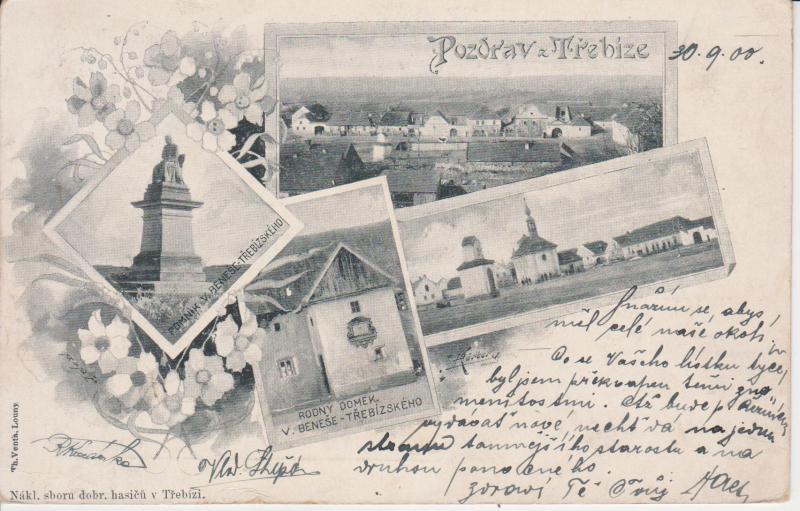 Pozdrav z Třebíze
30. 9. 00.
POMNÍK V. BENEŠE-TŘEBÍZSKÉHO
RODNÝ DOMEK
V. BENEŠE-TŘEBÍZSKÉHO
Snažím se, abys
měl celé naše okolí
Co se Vašeho lístku týče,
byl jsem překvapen těmi zna-
menitostmi. Až bude p.
vydávat nové, nechť dá na jednu
stranu tamnějšího starostu a na
druhou ponocného.
Zdraví Tě Tvůj
Th. Venta, Louny.
Nákl. sboru dobr. hasičů v Třebízi.